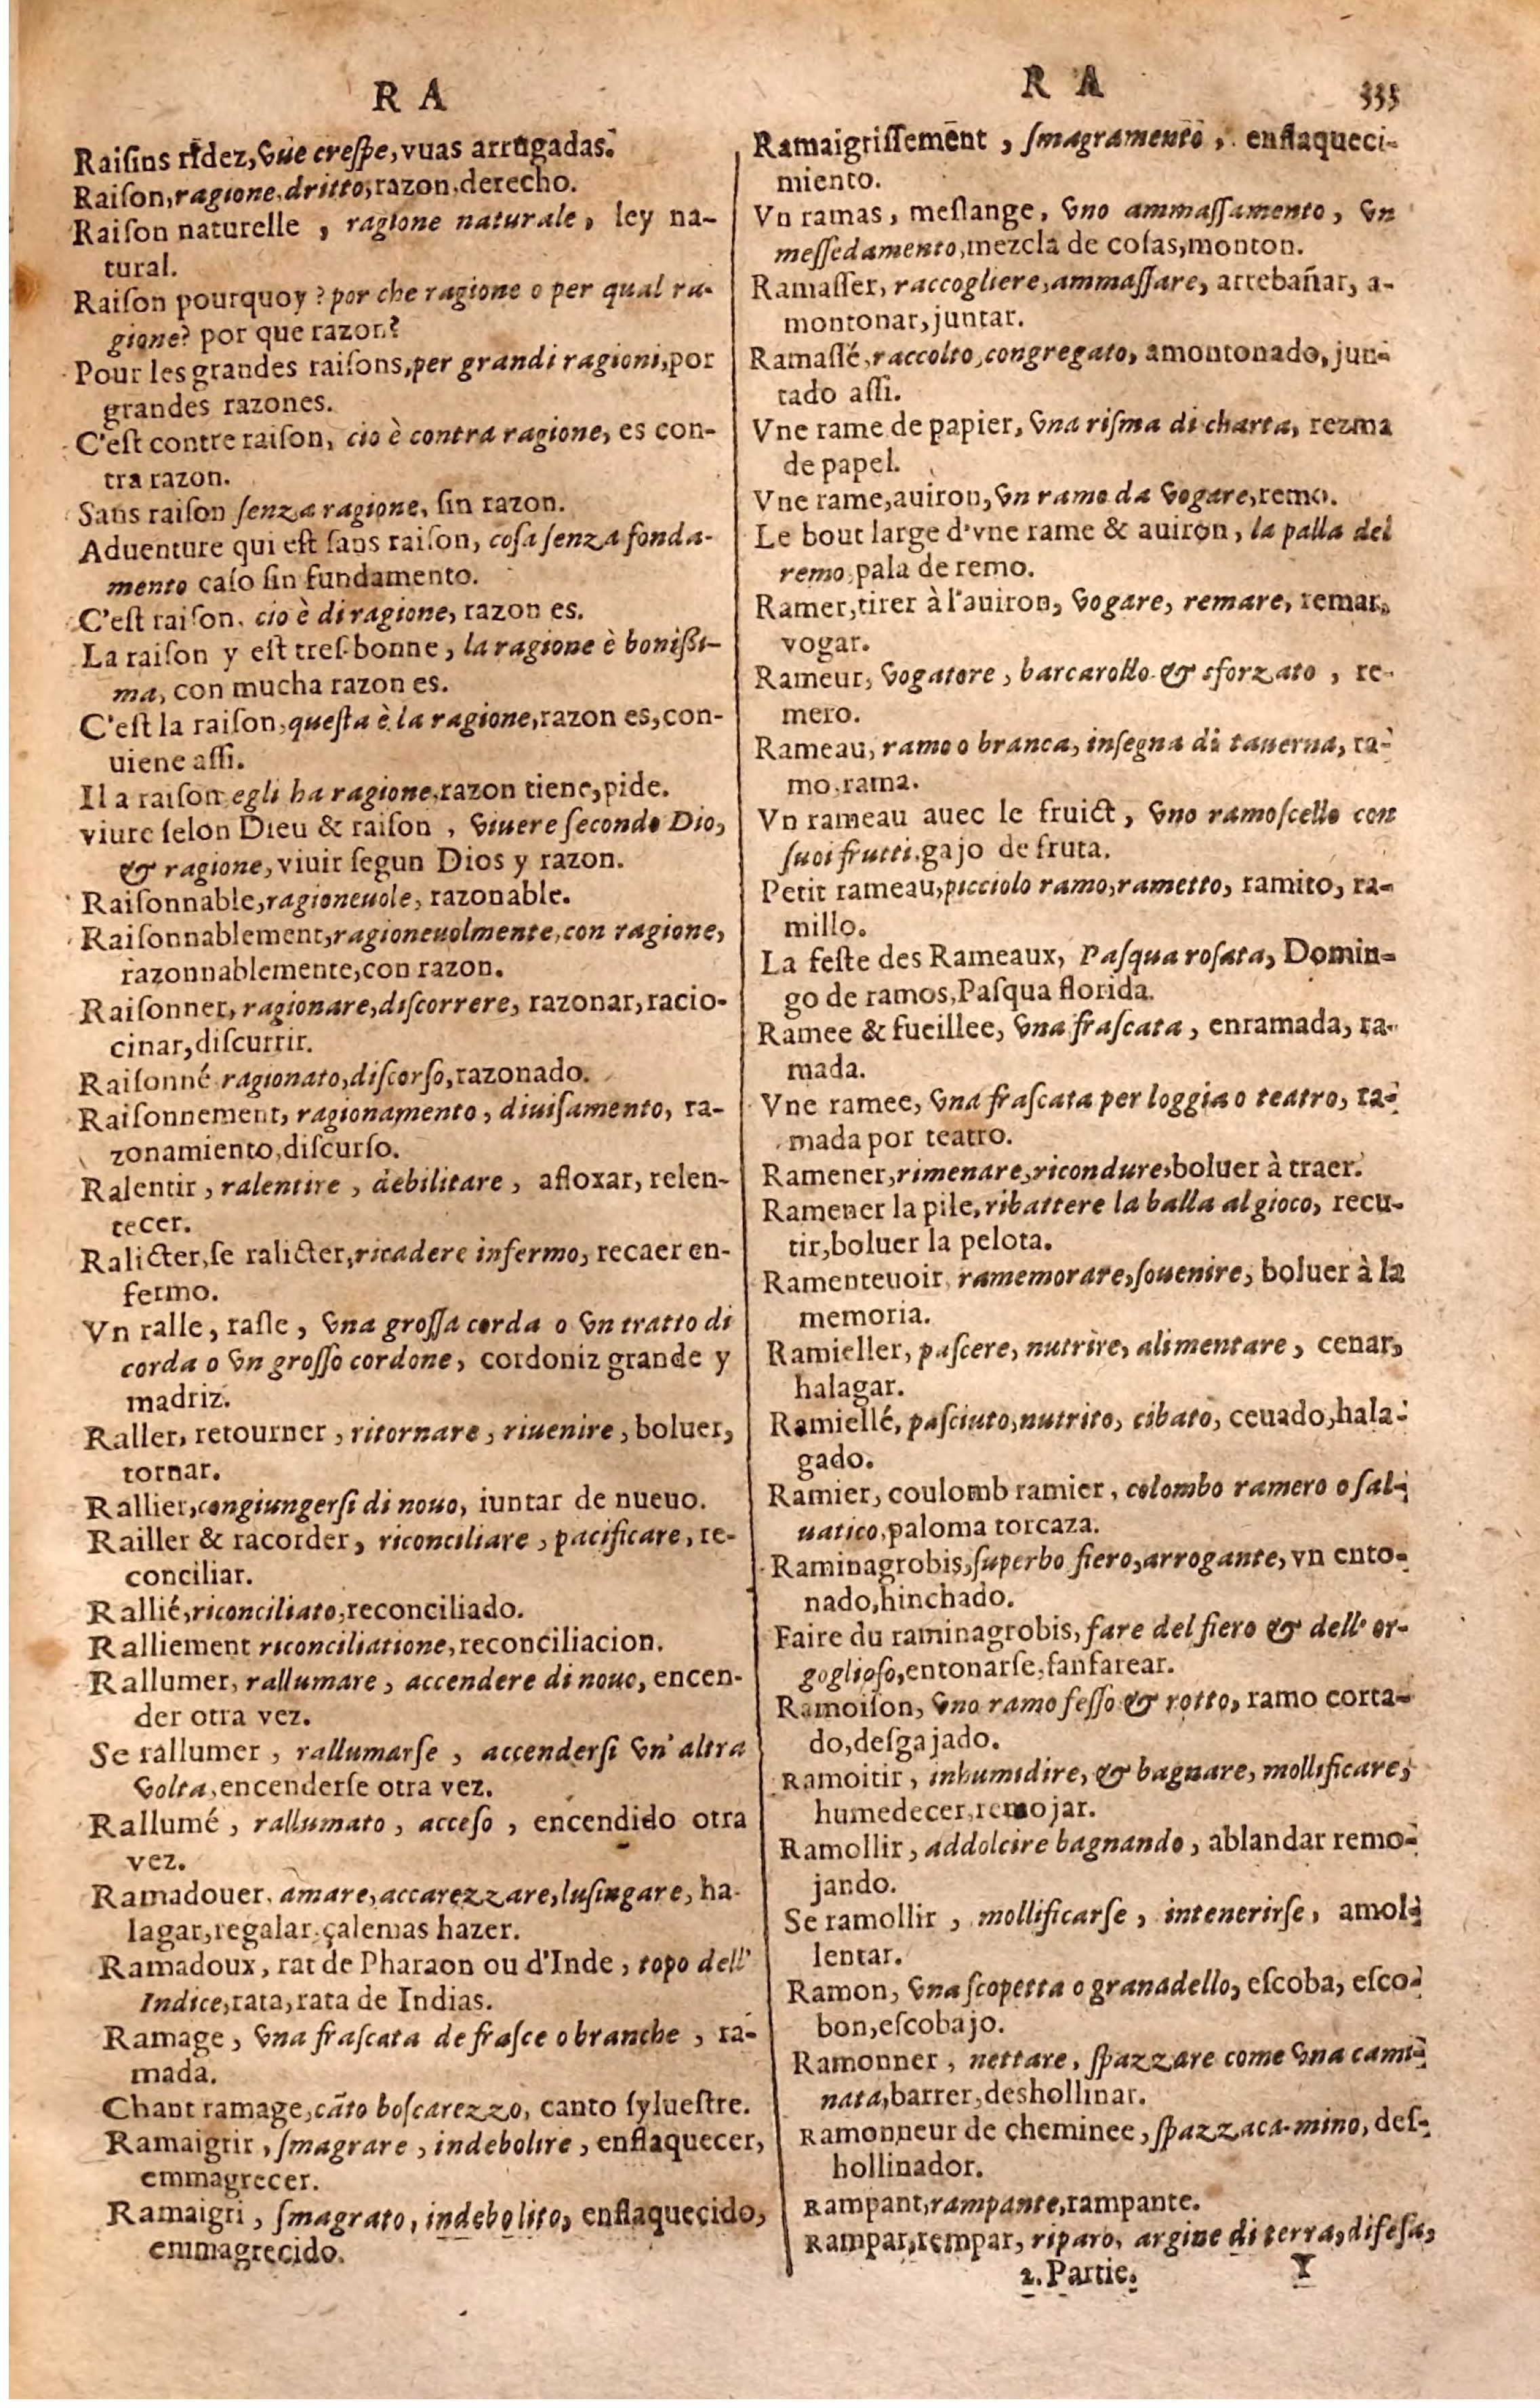 R A
Raisins ridez, vüe crespe, vuas arrugadas.
Raiſon, ragione, dritto, razon, derecho.
Raiſon naturelle, ragione naturale, ley na-
tural.
Raiſon pourquoy? por che ragione o per qual ra-
gione? por que razon?
Pour les grandes raiſons, per grandi ragioni, por
grandes razones.
C'eſt contre raiſon, cio è contra ragione, es con-
tra razon.
Sans raiſon ſenza ragione, ſin razon.
Aduenture qui eſt ſans raiſon, coſa ſenza fonda-
mento caſo ſin fundamento.
C'eſt raiſon, cio è di ragione, razon es.
La raiſon y eſt tres-bonne, la ragione è bonißi-
ma, con mucha razon es.
C'eſt la raiſon, queſta è la ragione, razon es, con-
uiene aſſi.
Il a raiſon egli ha ragione, razon tiene, pide.
viure ſelon Dieu & raiſon, viuere ſecondo Dio,
& ragione, viuir ſegun Dios y razon.
Raiſonnable, ragioneuole, razonable.
Raiſonnablement, ragioneuolmente, con ragione,
razonnablemente, con razon.
Raiſonner, ragionare, diſcorrere, razonar, racio-
cinar, diſcurrir.
Raiſonné ragionato, diſcorſo, razonado.
Raiſonnement, ragionamento, diuiſamento, ra-
zonamiento, diſcurſo.
Ralentir, ralentire, debilitare, afloxar, relen-
tecer.
Ralicter, ſe ralicter, ricadere infermo, recaer en-
fermo.
Vn ralle, raſle, vna groſſa corda o vn tratto di
corda o vn groſſo cordone, cordoniz grande y
madriz.
Raller, retourner, ritornare, riuenire, boluer,
tornar.
Rallier, congiungerſi di nouo, iuntar de nueuo.
Railler & racorder, riconciliare, pacificare, re-
conciliar.
Rallié, riconciliato, reconciliado.
Ralliement riconciliatione, reconciliacion.
Rallumer, rallumare, accendere di nouo, encen-
der otra vez.
Se rallumer, rallumarſe, accenderſi vn' altra
volta, encenderſe otra vez.
Rallumé, rallumato, acceſo, encendido otra
vez.
Ramadouer, amare, accarezzare, luſingare, ha-
lagar, regalar, çalemas hazer.
Ramadoux, rat de Pharaon ou d'Inde, topo dell'
Indice, rata, rata de Indias.
Ramage, vna fraſcata de fraſce o branche, ra-
mada.
Chant ramage, cãto boſcarezzo, canto ſylueſtre.
Ramaigrir, ſmagrare, indebolire, enflaquecer,
emmagrecer.
Ramaigri, ſmagrato, indebolito, enflaquecido,
emmagrecido.
R A 335
Ramaigriſſement, ſmagramento, enflaqueci-
miento.
Vn ramas, meſlange, vno ammaſſamento, vn
meſſedamento, mezcla de coſas, monton.
Ramaſſer, raccogliere, ammaſſare, arrebañar, a-
montonar, juntar.
Ramaſſé, raccolto, congregato, amontonado, jun-
tado aſſi.
Vne rame de papier, vna riſma di charta, rezma
de papel.
Vne rame, auiron, vn ramo da vogare, remo.
Le bout large d'vne rame & auiron, la palla del
remo, pala de remo.
Ramer, tirer à l'auiron, vogare, remare, remar,
vogar.
Rameur, vogatore, barcarollo & sforzato, re-
mero.
Rameau, ramo o branca, inſegna di tauerna, ra-
mo, rama.
Vn rameau auec le fruict, vno ramoſcello con
ſuoi frutti, gajo de fruta.
Petit rameau, picciolo ramo, rametto, ramito, ra-
millo.
La feſte des Rameaux, Paſqua roſata, Domin-
go de ramos, Paſqua florida.
Ramee & fueillee, vna fraſcata, enramada, ra-
mada.
Vne ramee, vna fraſcata per loggia o teatro, ra-
mada por teatro.
Ramener, rimenare, ricondure, boluer à traer.
Ramener la pile, ribattere la balla al gioco, recu-
tir, boluer la pelota.
Ramenteuoir, ramemorare, ſouenire, boluer à la
memoria.
Ramieller, paſcere, nutrire, alimentare, cenar,
halagar.
Ramiellé, paſciuto, nutrito, cibato, ceuado, hala-
gado.
Ramier, coulomb ramier, colombo ramero o ſal-
uatico, paloma torcaza.
Raminagrobis, ſuperbo fiero, arrogante, vn ento-
nado, hinchado.
Faire du raminagrobis, fare del fiero & dell' or-
goglioſo, entonarſe, fanfarear.
Ramoiſon, vno ramo feſſo & rotto, ramo corta-
do, deſgajado.
Ramoitir, inhumidire, & bagnare, mollificare,
humedecer, remojar.
Ramollir, addolcire bagnando, ablandar remo-
jando.
Se ramollir, mollificarſe, intenerirſe, amol-
lentar.
Ramon, vna ſcopetta o granadello, eſcoba, eſco-
bon, eſcobajo.
Ramonner, nettare, ſpazzare come vna cami-
nata, barrer, deshollinar.
Ramonneur de cheminee, ſpazzaca-mino, deſ-
hollinador.
Rampant, rampante, rampante.
Rampar, rempar, riparo, argine di terra, difeſa,
2. Partie. Y